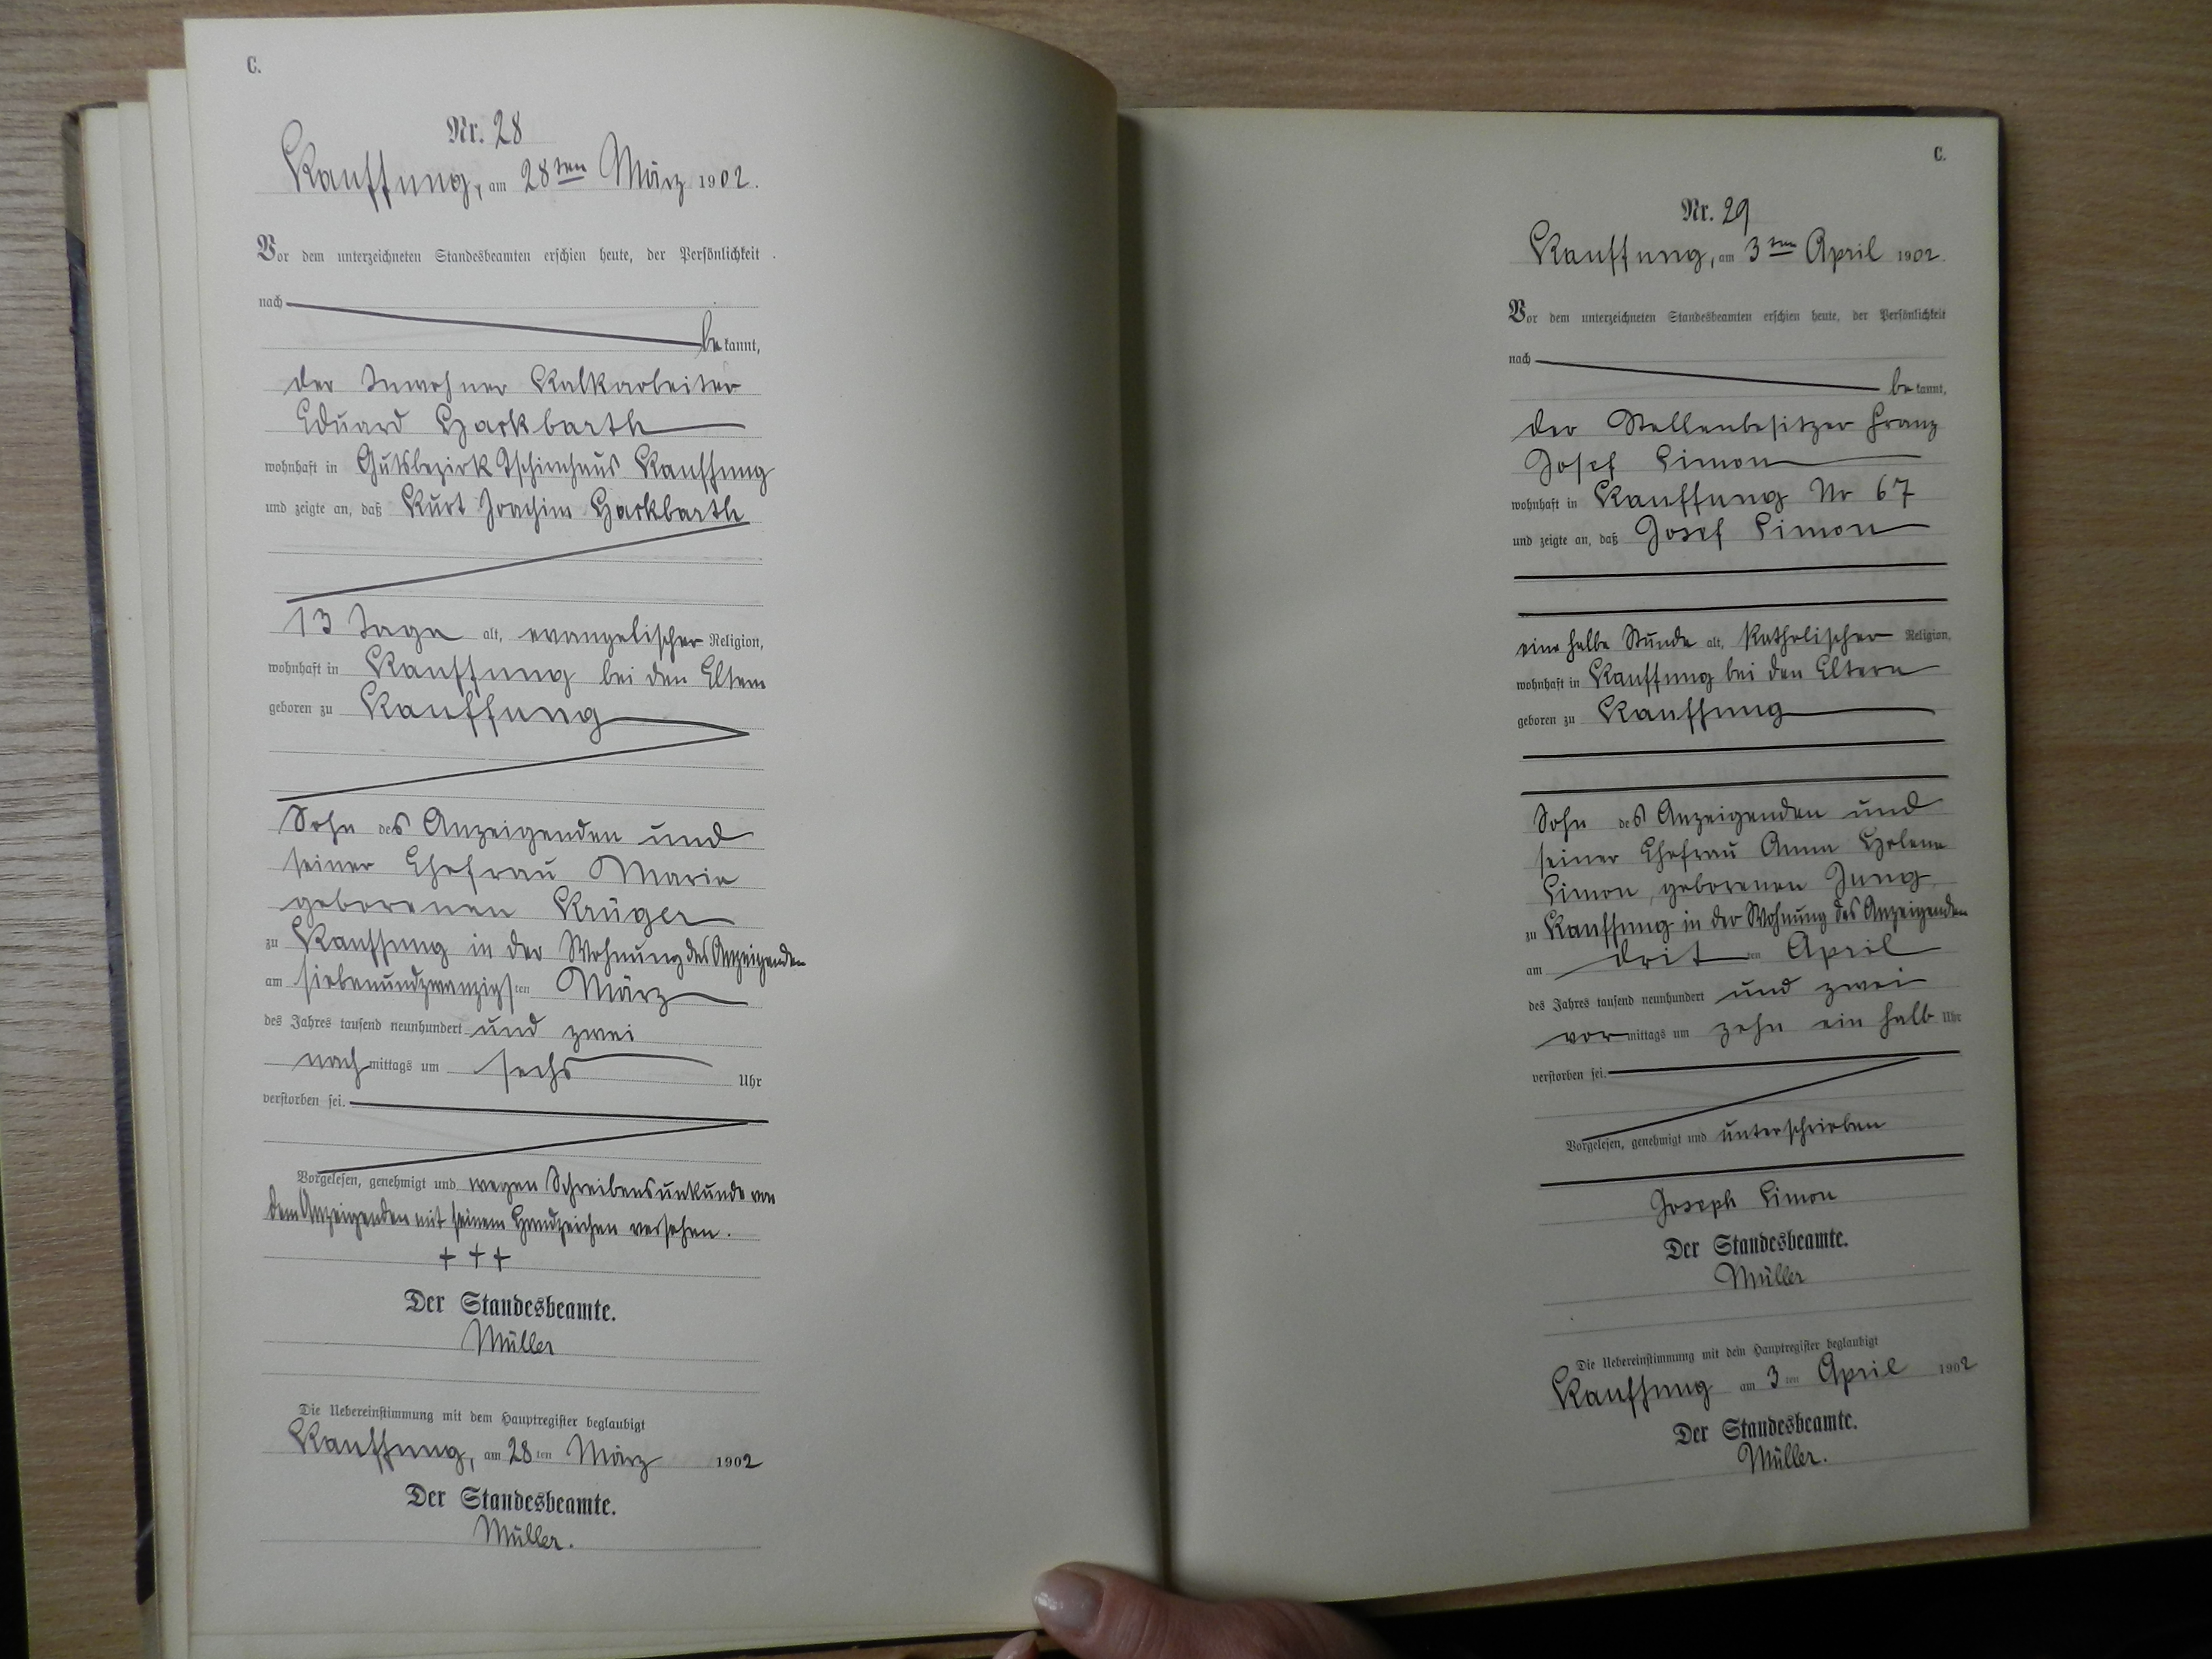 C.
Nr. 28
Kauffung, am 28ten März 1902.
Vor dem unterzeichneten Standesbeamten erschien heute, der Persönlichkeit
nach
bekannt,
der Inwohner Kalkarbeiter
Eduard Harkbarth
wohnhaft in Gutsbezirk Tschirnhaus Kauffung
und zeigte an, daß Kurt Joachim Harkbarth
13 Tage alt, evangelischer Religion,
wohnhaft in Kauffung bei den Eltern
geboren zu Kauffung
Sohn des Anzeigenden und
seiner Ehefrau Marie
geborenen Krüger
zu Kauffung in der Wohnung des Anzeigenden
am siebenundzwanzigsten März
des Jahres tausend neunhundert und zwei
nachmittags um sechs Uhr
verstorben sei.
Vorgelesen, genehmigt und wegen Schreibensunkunde von
dem Anzeigenden mit seinem Handzeichen versehen.
+ + +
Der Standesbeamte.
Müller
Die Uebereinstimmung mit dem Hauptregister beglaubigt
Kauffung, am 28ten März 1902
Der Standesbeamte.
Müller.
C.
Nr. 29
Kauffung, am 3ten April 1902.
Vor dem unterzeichneten Standesbeamten erschien heute, der Persönlichkeit
nach
bekannt,
der Stellenbesitzer Franz
Josef Simon
wohnhaft in Kauffung Nr 67
und zeigte an, daß Josef Simon
eine halbe Stunde alt, katholischer Religion,
wohnhaft in Kauffung bei den Eltern
geboren zu Kauffung
Sohn des Anzeigenden und
seiner Ehefrau Anna Helene
Simon, geborenen Jung
zu Kauffung in der Wohnung des Anzeigenden
am dritten April
des Jahres tausend neunhundert und zwei
vormittags um zehn ein halb Uhr
verstorben sei.
Vorgelesen, genehmigt und unterschrieben
Joseph Simon
Der Standesbeamte.
Müller
Die Uebereinstimmung mit dem Hauptregister beglaubigt
Kauffung am 3ten April 1902
Der Standesbeamte.
Müller.